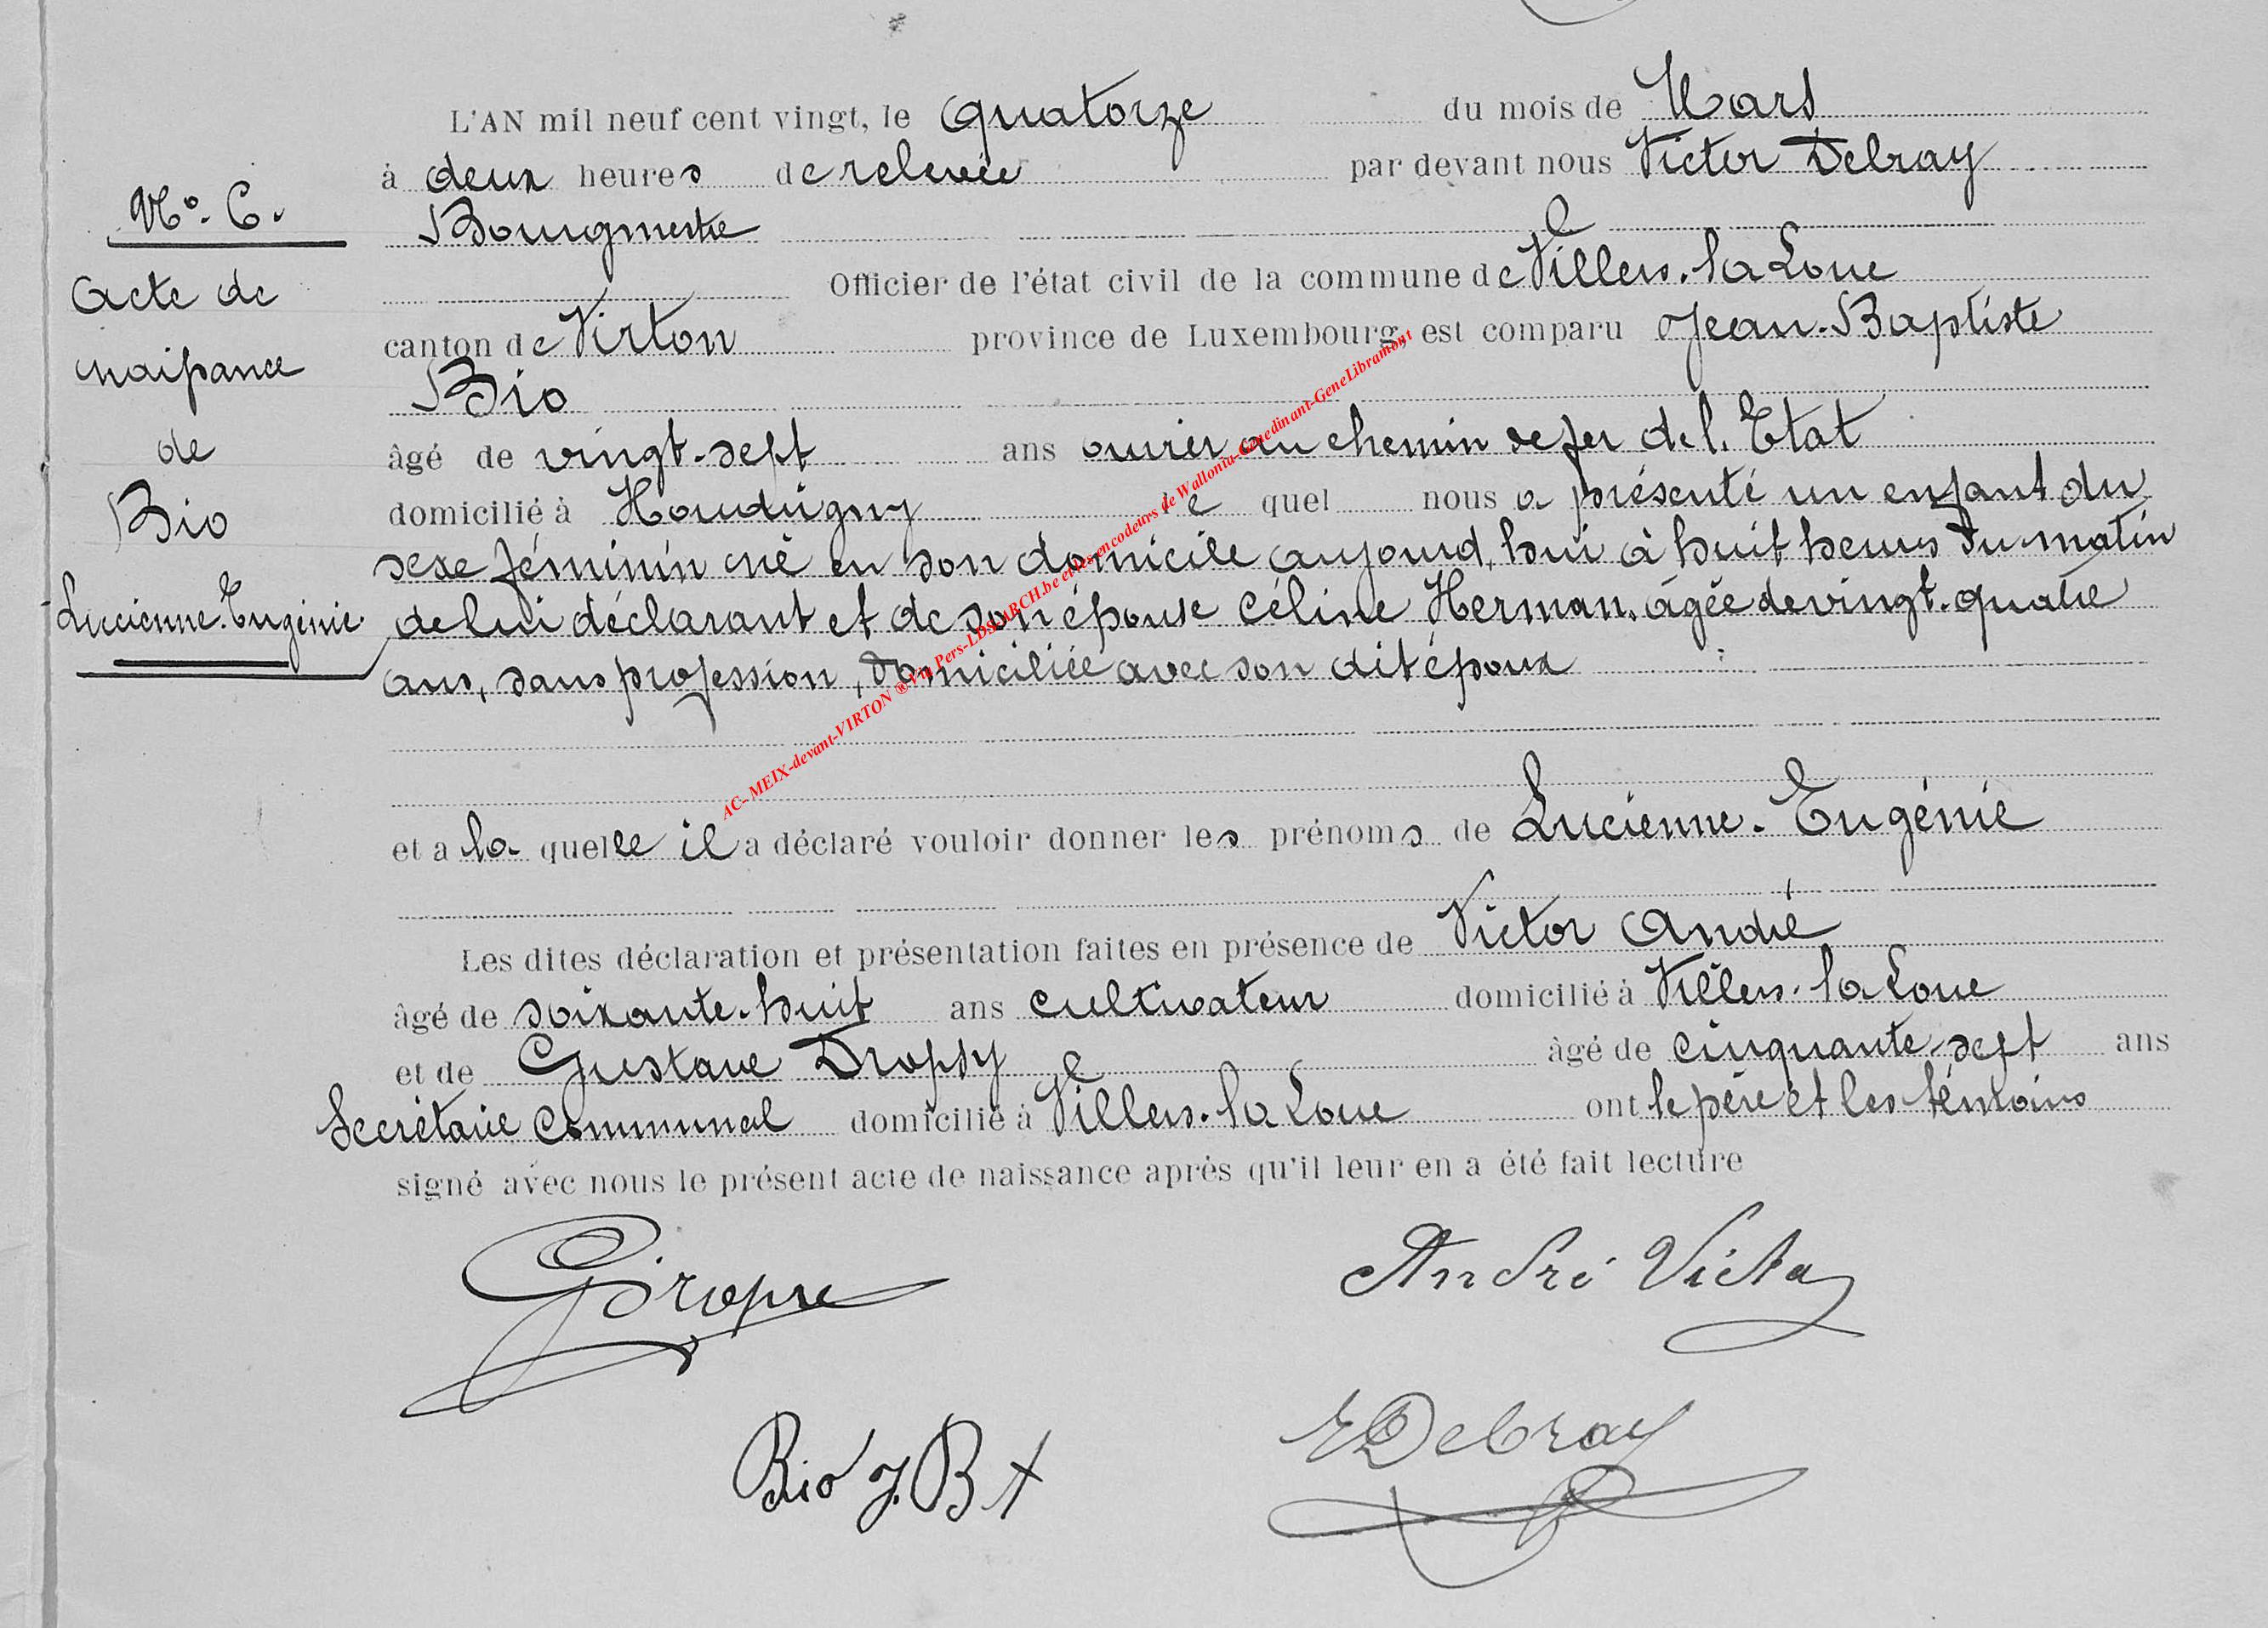 L'AN mil neuf cent vingt, le quatorze du mois de Mars
à deux heures de relevée par devant nous Victor Debray
N°. 6.
Bourgmestre
Officier de l'état civil de la commune de Villers-la Loue
Acte de
canton de Virton province de Luxembourg, est comparu Jean-Baptiste
naissance
Bio
de
âgé de vingt-sept ans ouvrier au chemin de fer de l'Etat
Bio
domicilié à Houdrigny le quel nous a présenté un enfant du
sexe féminin né en son domicile aujourd'hui à huit heures du matin
Lucienne-Eugénie
de lui déclarant et de son épouse Céline Herman, âgée de vingt-quatre
ans, sans profession, domiciliée avec son dit époux
et a la quelle il a déclaré vouloir donner les prénoms de Lucienne-Eugénie
Les dites déclaration et présentation faites en présence de Victor André
âgé de soixante-huit ans cultivateur domicilié à Villers-la Loue
et de Gustave Dropsy âgé de cinquante-sept ans
Secrétaire communal domicilié à Villers-la Loue ont le père et les témoins
signé avec nous le présent acte de naissance après qu'il leur en a été fait lecture
André Victor
Debray
Bio J. Bt
AC- MEIX-devant-VIRTON ® Via Pers-LDS-ARCH.be et les encodeurs de Wallonia-Genedinant-GeneLibramont